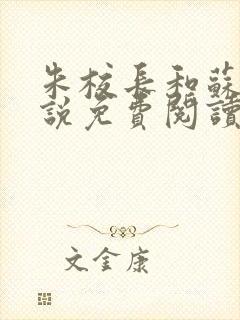 朱校長和蘇
說免費閱讀
文金康